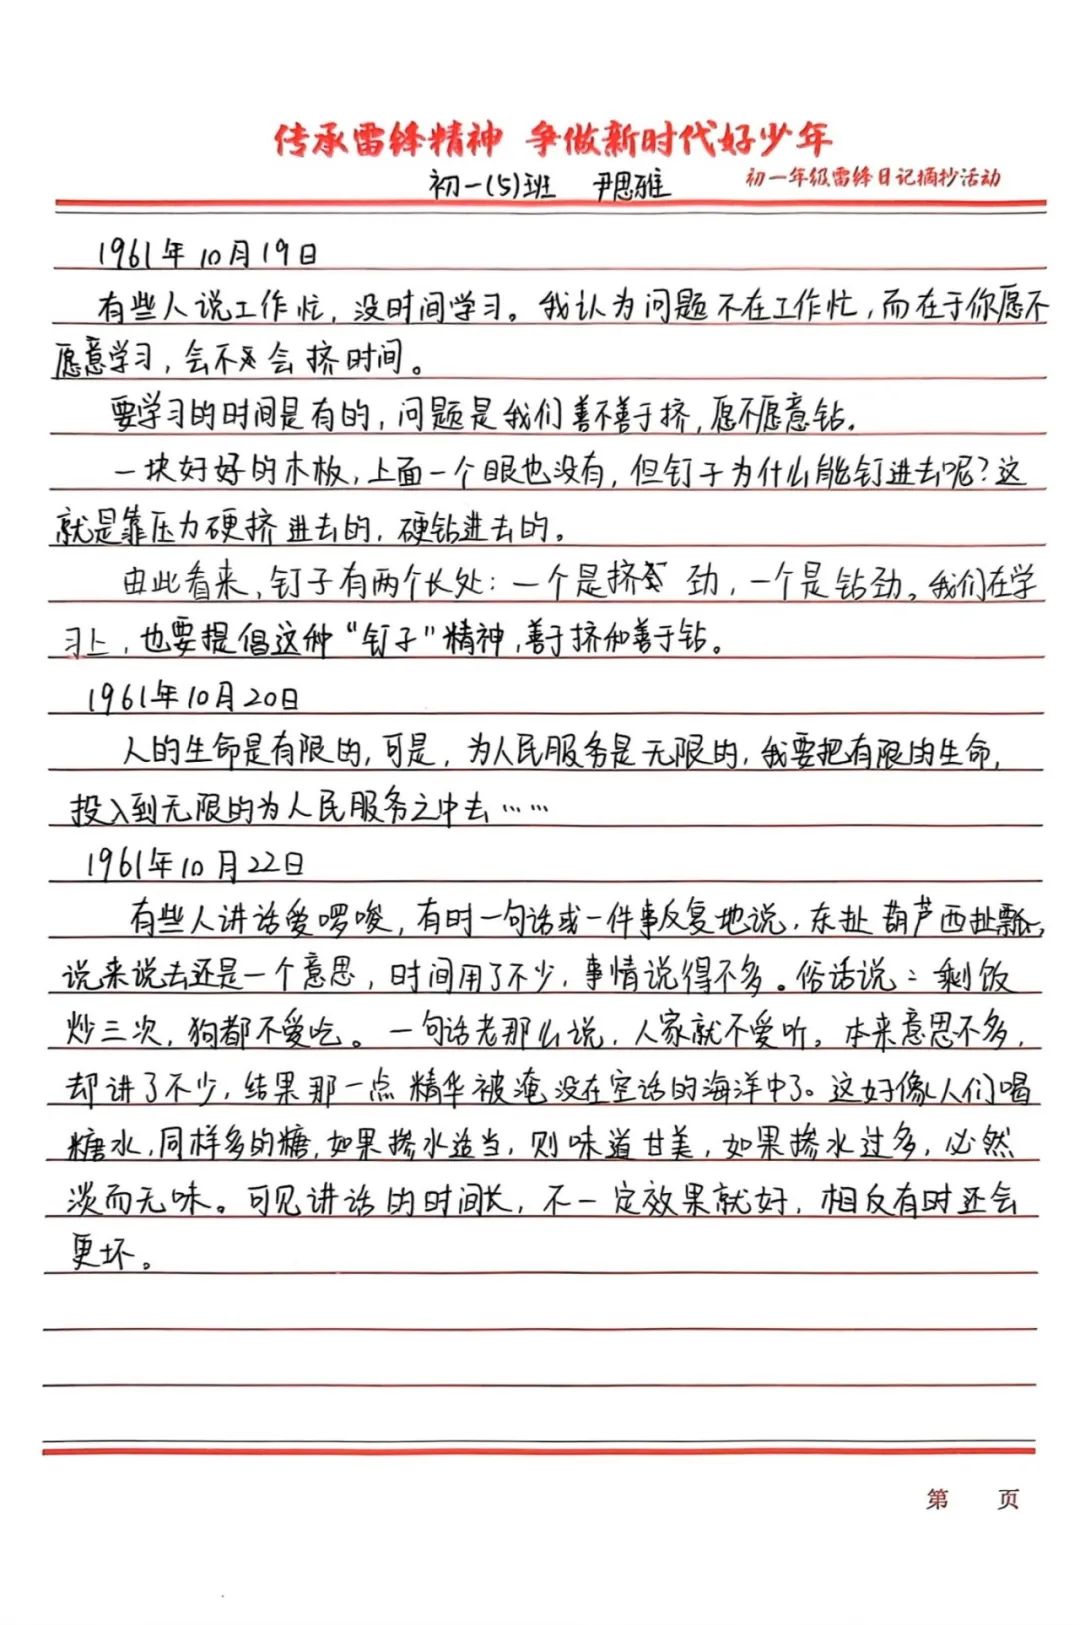 传承雷锋精神 争做新时代好少年
初一(5)班 尹思雅 初一年级雷锋日记摘抄活动
1961年10月19日
有些人说工作忙，没时间学习。我认为问题不在工作忙，而在于你愿不
愿意学习，会不会挤时间。
要学习的时间是有的，问题是我们善不善于挤，愿不愿意钻。
一块好好的木板，上面一个眼也没有，但钉子为什么能钉进去呢？这
就是靠压力硬挤进去的，硬钻进去的。
由此看来，钉子有两个长处：一个是挤劲，一个是钻劲。我们在学
习上，也要提倡这种“钉子”精神，善于挤和善于钻。
1961年10月20日
人的生命是有限的，可是，为人民服务是无限的，我要把有限的生命，
投入到无限的为人民服务之中去……
1961年10月22日
有些人讲话爱啰唆，有时一句话或一件事反复地说，东扯葫芦西扯瓢，
说来说去还是一个意思，时间用了不少，事情说得不多。俗话说：剩饭
炒三次，狗都不爱吃。一句话老那么说，人家就不爱听。本来意思不多，
却讲了不少，结果那一点精华被淹没在空话的海洋中了。这好像人们喝
糖水，同样多的糖，如果掺水适当，则味道甘美，如果掺水过多，必然
淡而无味。可见讲话的时间长，不一定效果就好，相反有时还会
更坏。
第 页